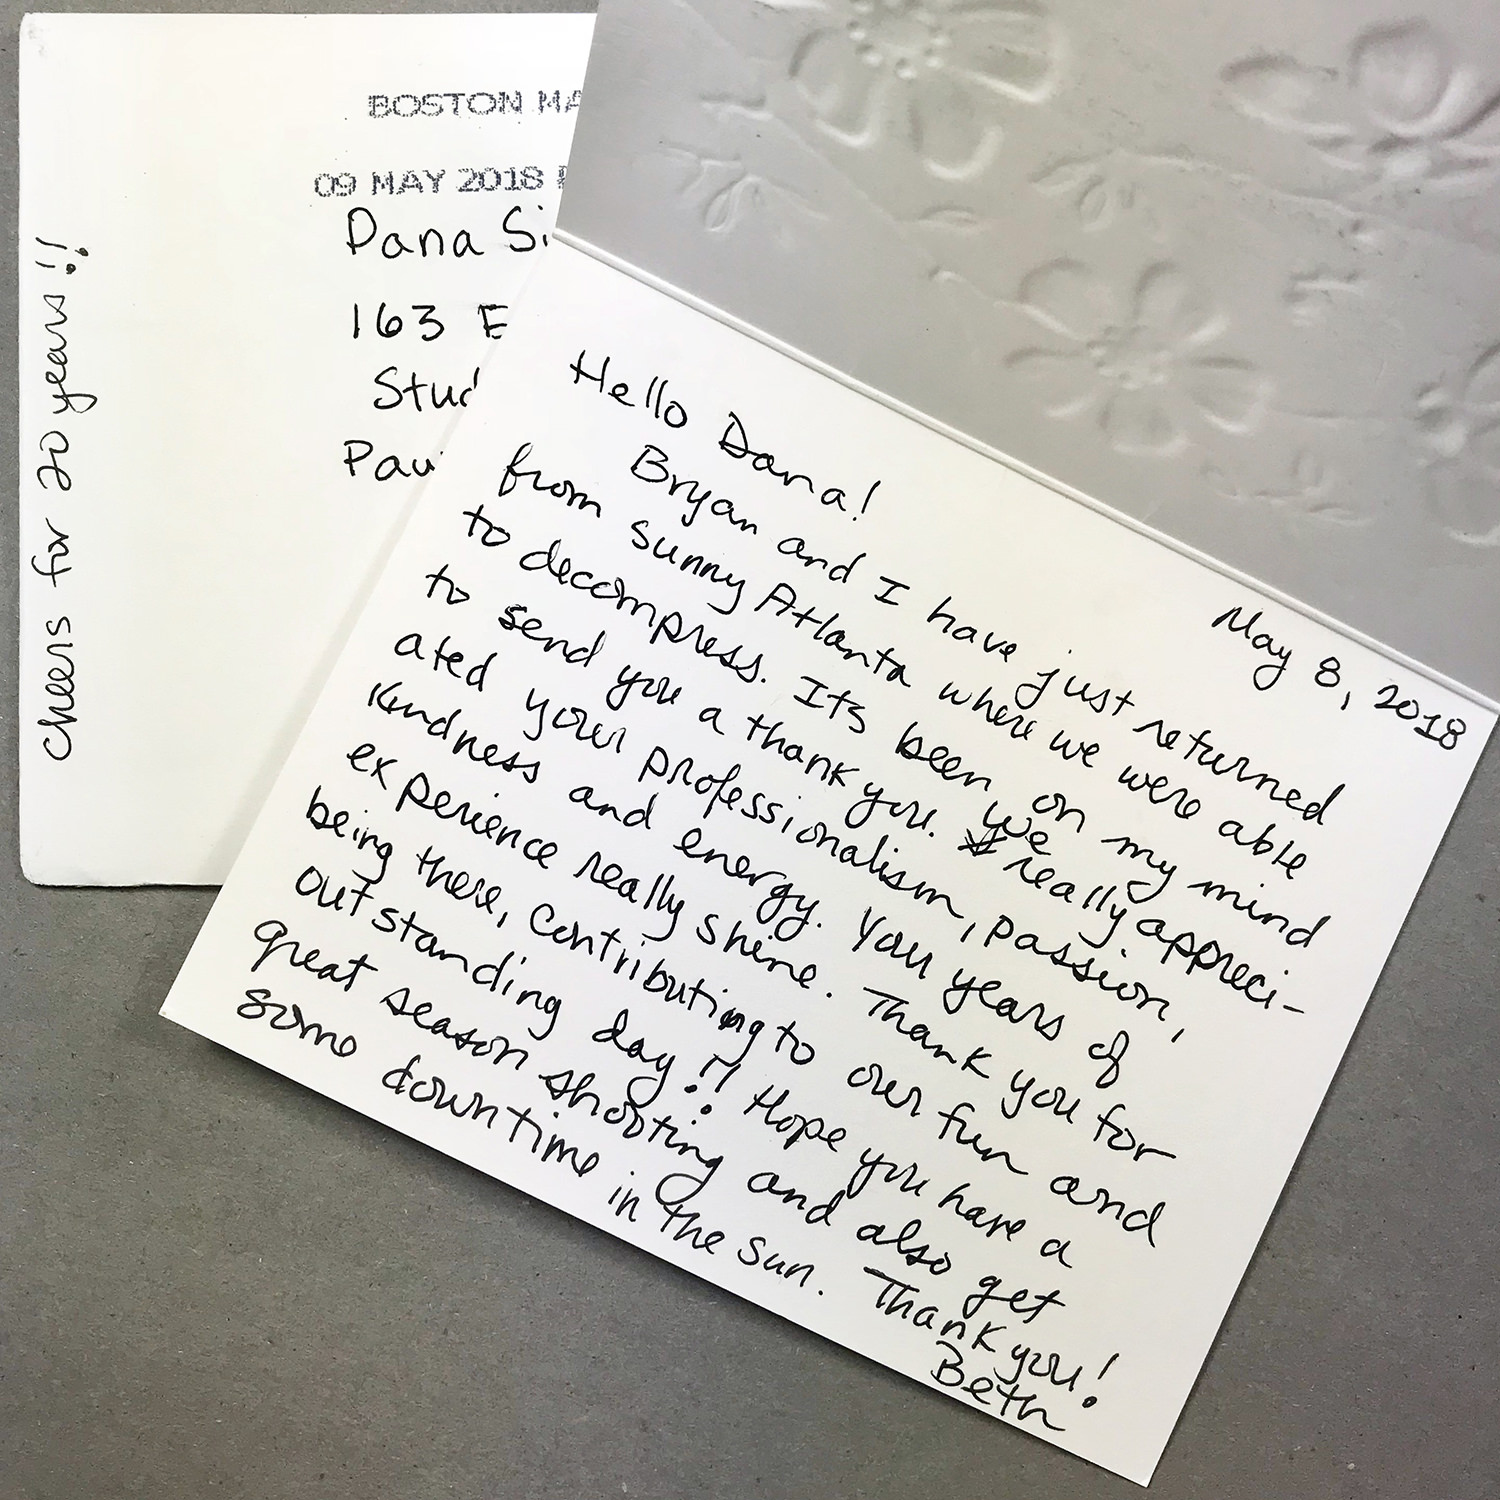 BOSTON MA
09 MAY 2018
Dana Si
163 E
Stud
Pau
Cheers for 20 years!!
May 8, 2018
Hello Dana!
Bryan and I have just returned
from sunny Atlanta where we were able
to decompress. Its been on my mind
to send you a thank you. We really appreci-
ated your professionalism, passion,
kindness and energy. Your years of
experience really shine. Thank you for
being there, contributing to our fun and
outstanding day!! Hope you have a
great season shooting and also get
some downtime in the sun. Thank you!
Beth